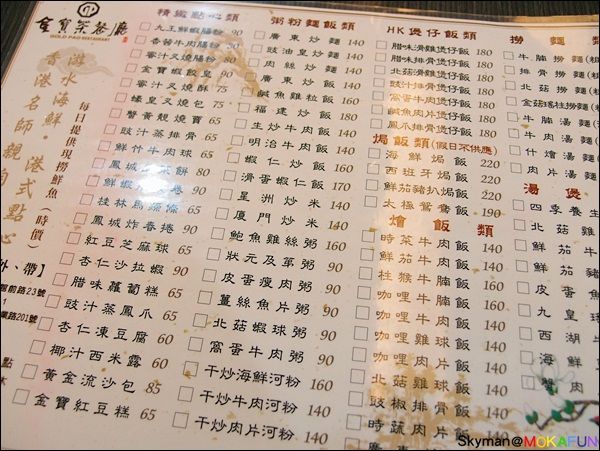 金寶茶餐廳
GOLD PAO RESTAURANT
游水海鮮・港式點心
香港名師親自
每日提供現撈鮮魚
時價
外、帶】
精緻點心類
九王鮮蝦腸粉 90
香茜牛肉腸粉 90
蜜汁叉燒腸粉
金寶蝦餃皇 90
蜜汁叉燒酥
蠔皇叉燒包 75
蟹黃靚燒賣
豉汁蒸排骨
鮮竹牛肉球 65
桂林馬蹄條
鳳城炸春捲 90
紅豆芝麻球 65
杏仁沙拉蝦 90
腊味蘿蔔糕 60
豉汁蒸鳳爪 65
杏仁凍豆腐 60
椰汁西米露 60
黃金流沙包 85
金寶紅豆糕 65
粥粉麵飯類
廣東炒麵 140
豉油皇炒麵 140
肉絲炒麵 140
廣東炒飯 140
鹹魚雞粒飯 160
福建炒飯
生炒牛肉飯 140
明治牛肉飯 140
蝦仁炒飯 140
滑蛋蝦仁飯 150
星洲炒米 140
廈門炒米 140
鮑魚雞絲粥 90
狀元及第粥 90
皮蛋瘦肉粥 90
薑絲魚片粥 90
北菇蝦球粥 90
窩蛋牛肉粥 90
干炒海鮮河粉 160
干炒牛肉河粉 140
干炒肉片河粉 140
HK煲仔飯類
腊味滑雞煲仔飯 180
腊味排骨煲仔飯 180
北菇滑雞煲仔飯 180
豉汁排骨煲仔飯 180
窩蛋牛肉煲仔飯 180
鹹魚肉餅煲仔飯 180
鳳爪排骨煲仔飯 180
焗飯類(假日不供應)
海鮮焗飯 220
西班牙焗飯 220
鮮茄豬扒焗飯 220
太極鴛鴦飯 190
燴飯類
時菜牛肉飯 140
鮮茄牛肉飯 140
柱猴牛腩飯 160
咖哩牛腩飯 160
咖哩牛肉飯 140
咖哩雞球飯 140
咖哩肉片飯 140
北菇雞球飯 140
豉椒排骨飯 140
時蔬肉片飯 140
撈麵類
牛腩撈麵
排骨撈麵
北菇撈麵
金菇瑤柱撈麵
牛腩湯麵
什燴湯麵
肉片湯麵
湯煲
四季養生
北菇雞
鮮茄牛
鮮茄豬
皮蛋魚
九皇
西湖
海鮮
蟹肉
Skyman@MOKAFUN